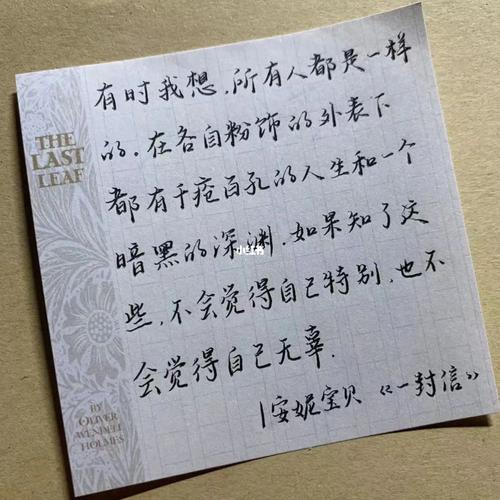 THE
LAST
LEAF
有时我想,所有人都是一样
的.在各自粉饰的外表下
都有千疮百孔的人生和一个
暗黑的深渊.如果知了这
些,不会觉得自己特别,也不
会觉得自己无辜.
|安妮宝贝《一封信》
小红书
BY
OLIVER
WENDELL
HOLMES